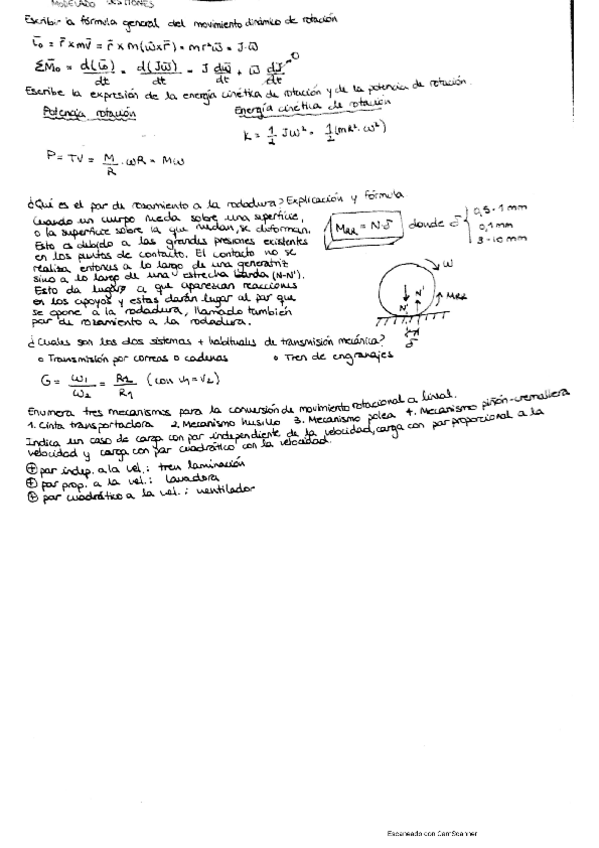 MODELADO CUESTIONES
Escribir la fórmula general del movimiento dinámico de rotación
L̄o = r̄ x mv̄ = r̄ x m(ω̄xr̄) = mr²ω̄ = J·ω̄
ΣM̄o = d(L̄o)/dt = d(Jω̄)/dt = J dω̄/dt + ω̄ dJ/dt → 0
Escribe la expresión de la energía cinética de rotación y de la potencia de rotación.
Potencia rotación
Energía cinética de rotación
K = 1/2 Jω² = 1/2 (mR²·ω²)
P = TV = M/R · ωR = Mω
¿Qué es el par de rozamiento a la rodadura? Explicación y fórmula
Cuando un cuerpo rueda sobre una superficie,
o la superficie sobre la que ruedan, se deforman.
Esto es debido a las grandes presiones existentes
en los puntos de contacto. El contacto no se
realiza entonces a lo largo de una generatriz
sino a lo largo de una estrecha banda (N-N').
Esto da lugar a que aparezcan reacciones
en los apoyos y estas darán lugar al par que
se opone a la rodadura, llamado también
par de rozamiento a la rodadura.
MRR = N·δ donde δ
0,5 - 1 mm
0,1 mm
3 - 10 mm
ω
MRR
N'
N'
δ
¿Cuales son los dos sistemas + habituales de transmisión mecánica?
o Transmisión por correas o cadenas
o Tren de engranajes
G = ω1/ω2 = R2/R1 (con v1 = v2)
Enumera tres mecanismos para la conversión de movimiento rotacional a lineal.
1. Cinta transportadora 2. Mecanismo husillo 3. Mecanismo polea 4. Mecanismo piñón-cremallera
Indica un caso de carga con par independiente de la velocidad, carga con par proporcional a la
velocidad y carga con par cuadrático con la velocidad.
⊕ par indep. a la vel.: tren laminación
⊕ par prop. a la vel.: lavadora
⊕ par cuadrático a la vel.: ventilador
Escaneado con CamScanner